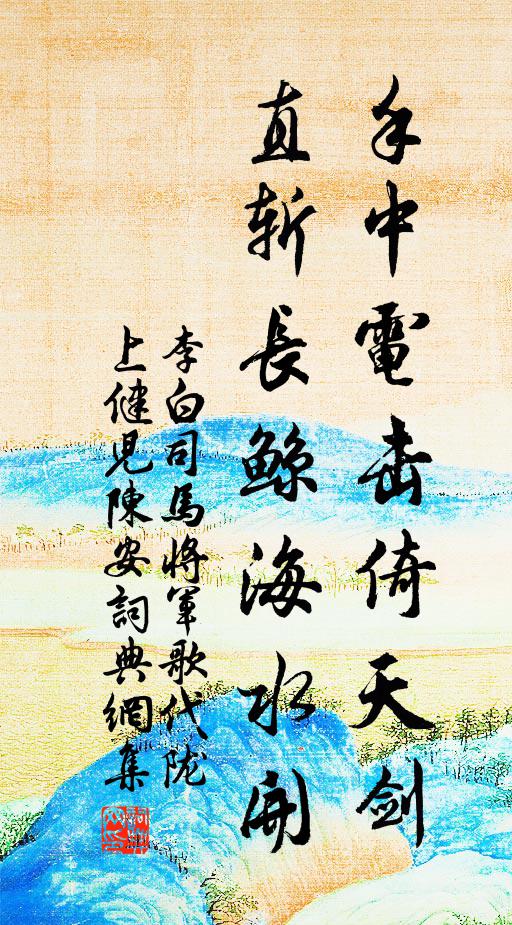 手中電击倚天劍
直斩長鲸海水開
李白司馬將軍歌代陇
上健児陳安詞典網集